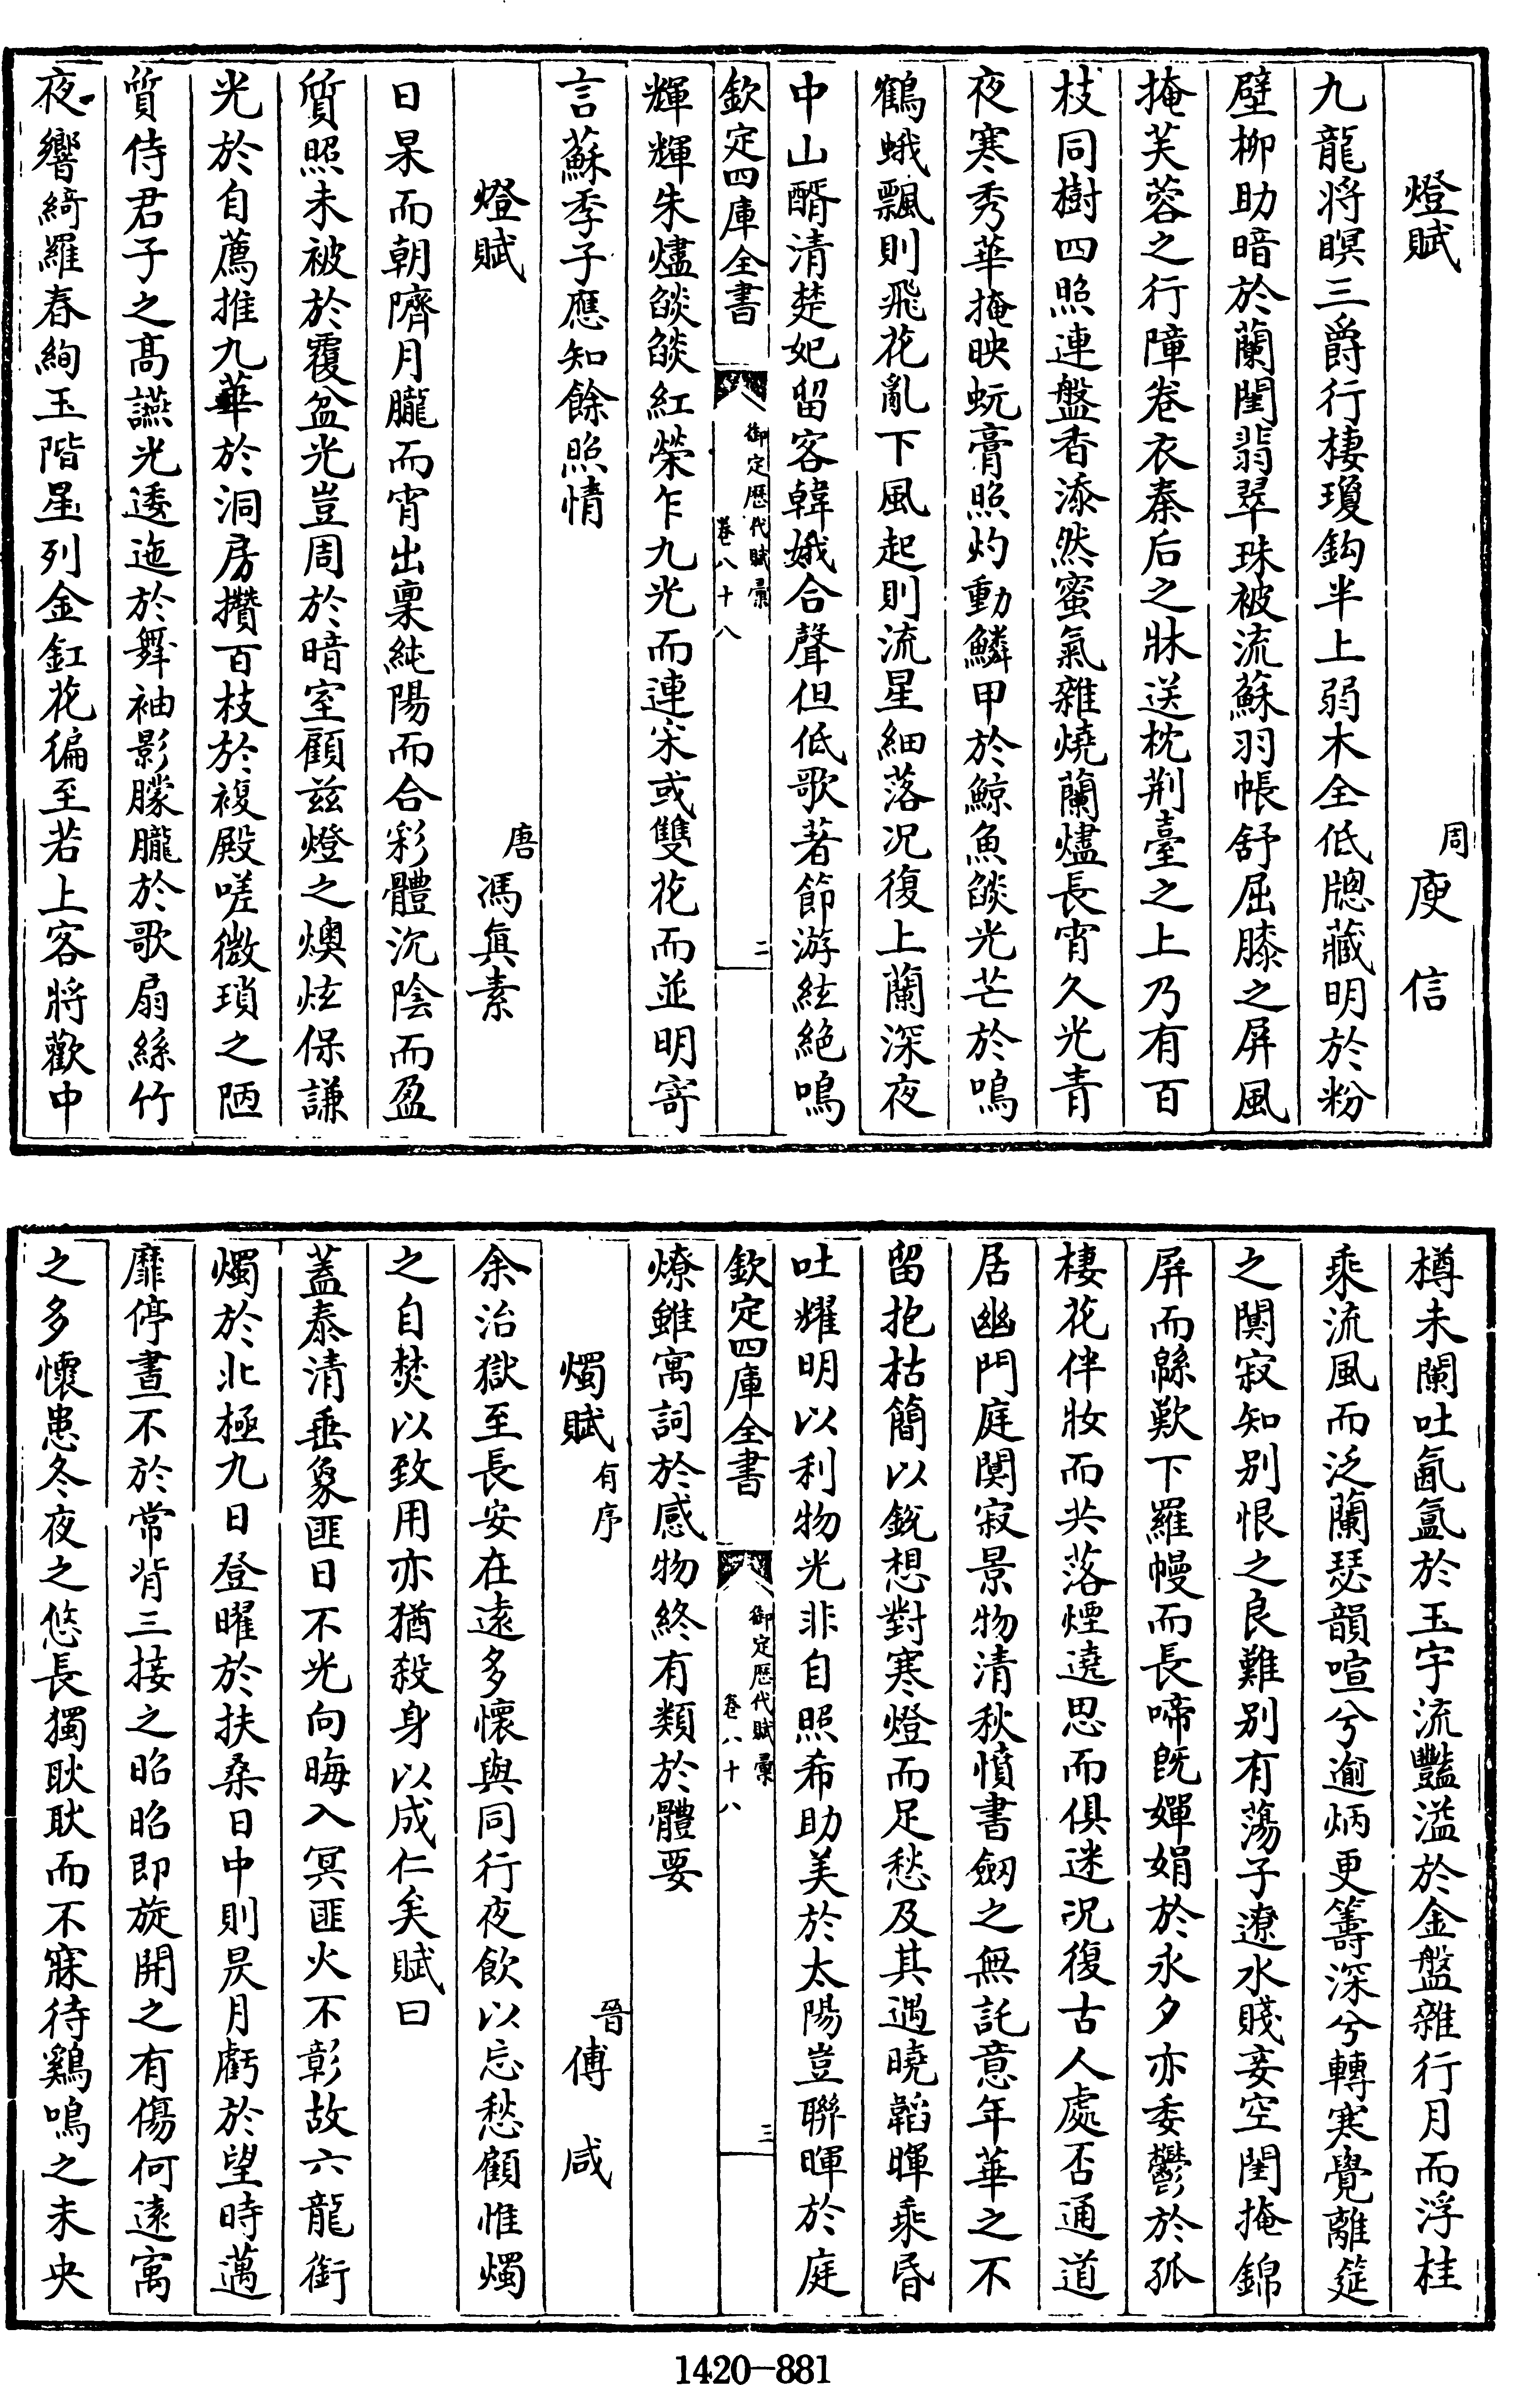 燈賦　周庾信
九龍將暝三爵行棲瓊鈎半上弱木全低牕藏明於粉
壁柳助暗於蘭閨翡翠珠被流蘇羽帳舒屈膝之屏風
掩芙蓉之行障卷衣秦后之牀送枕荆臺之上乃有百
枝同樹四照連盤香添然蜜氣雜燒蘭燼長宵久光青
夜寒秀華掩映蚖膏照灼動鱗甲於鯨魚燄光芒於鳴
鶴蛾飄則飛花亂下風起則流星細落况復上蘭深夜
中山醑清楚妃留客韓娥合聲但低歌著節游絃絶鳴
欽定四庫全書　御定歷代賦彙　卷八十八　二
輝輝朱燼燄燄紅榮乍九光而連宋或雙花而並明寄
言蘇季子應知餘照情
燈賦　唐馮真素
日杲而朝隮月朧而宵出稟純陽而合彩體沉陰而盈
質照未被於覆盆光豈周於暗室顧兹燈之燠炫保謙
光於自薦推九華於洞房攢百枝於複殿嗟微瑣之陋
質侍君子之高讌光逶迤於舞袖影朦朧於歌扇絲竹
夜響綺羅春絢玉階星列金釭花徧至若上客將歡中
樽未闌吐氤氳於玉宇流豔溢於金盤雜行月而浮桂
乘流風而泛蘭瑟韻喧兮逾炳更籌深兮轉寒覺離筵
之闃寂知别恨之良難别有蕩子遼水賤妾空閨掩錦
屏而緜歎下羅幔而長啼旣嬋娟於永夕亦委鬱於孤
棲花伴妝而共落煙遶思而俱迷况復古人處否通道
居幽門庭闃寂景物清秋憤書劒之無託意年華之不
留抱枯簡以銳想對寒燈而足愁及其遇曉韜暉乘昏
吐耀明以利物光非自照希助美於太陽豈聯暉於庭
欽定四庫全書　御定歷代賦彙　卷八十八　三
燎雖寓詞於感物終有類於體要
燭賦有序　晉傅咸
余治獄至長安在遠多懷與同行夜飲以忘愁顧惟燭
之自焚以致用亦猶殺身以成仁矣賦曰
蓋泰清垂象匪日不光向晦入冥匪火不彰故六龍銜
燭於北極九日登曜於扶桑日中則昃月虧於望時邁
靡停晝不於常背三接之昭昭即旋開之有傷何遠寓
之多懷患冬夜之悠長獨耿耿而不寐待鷄鳴之未央
1420-881